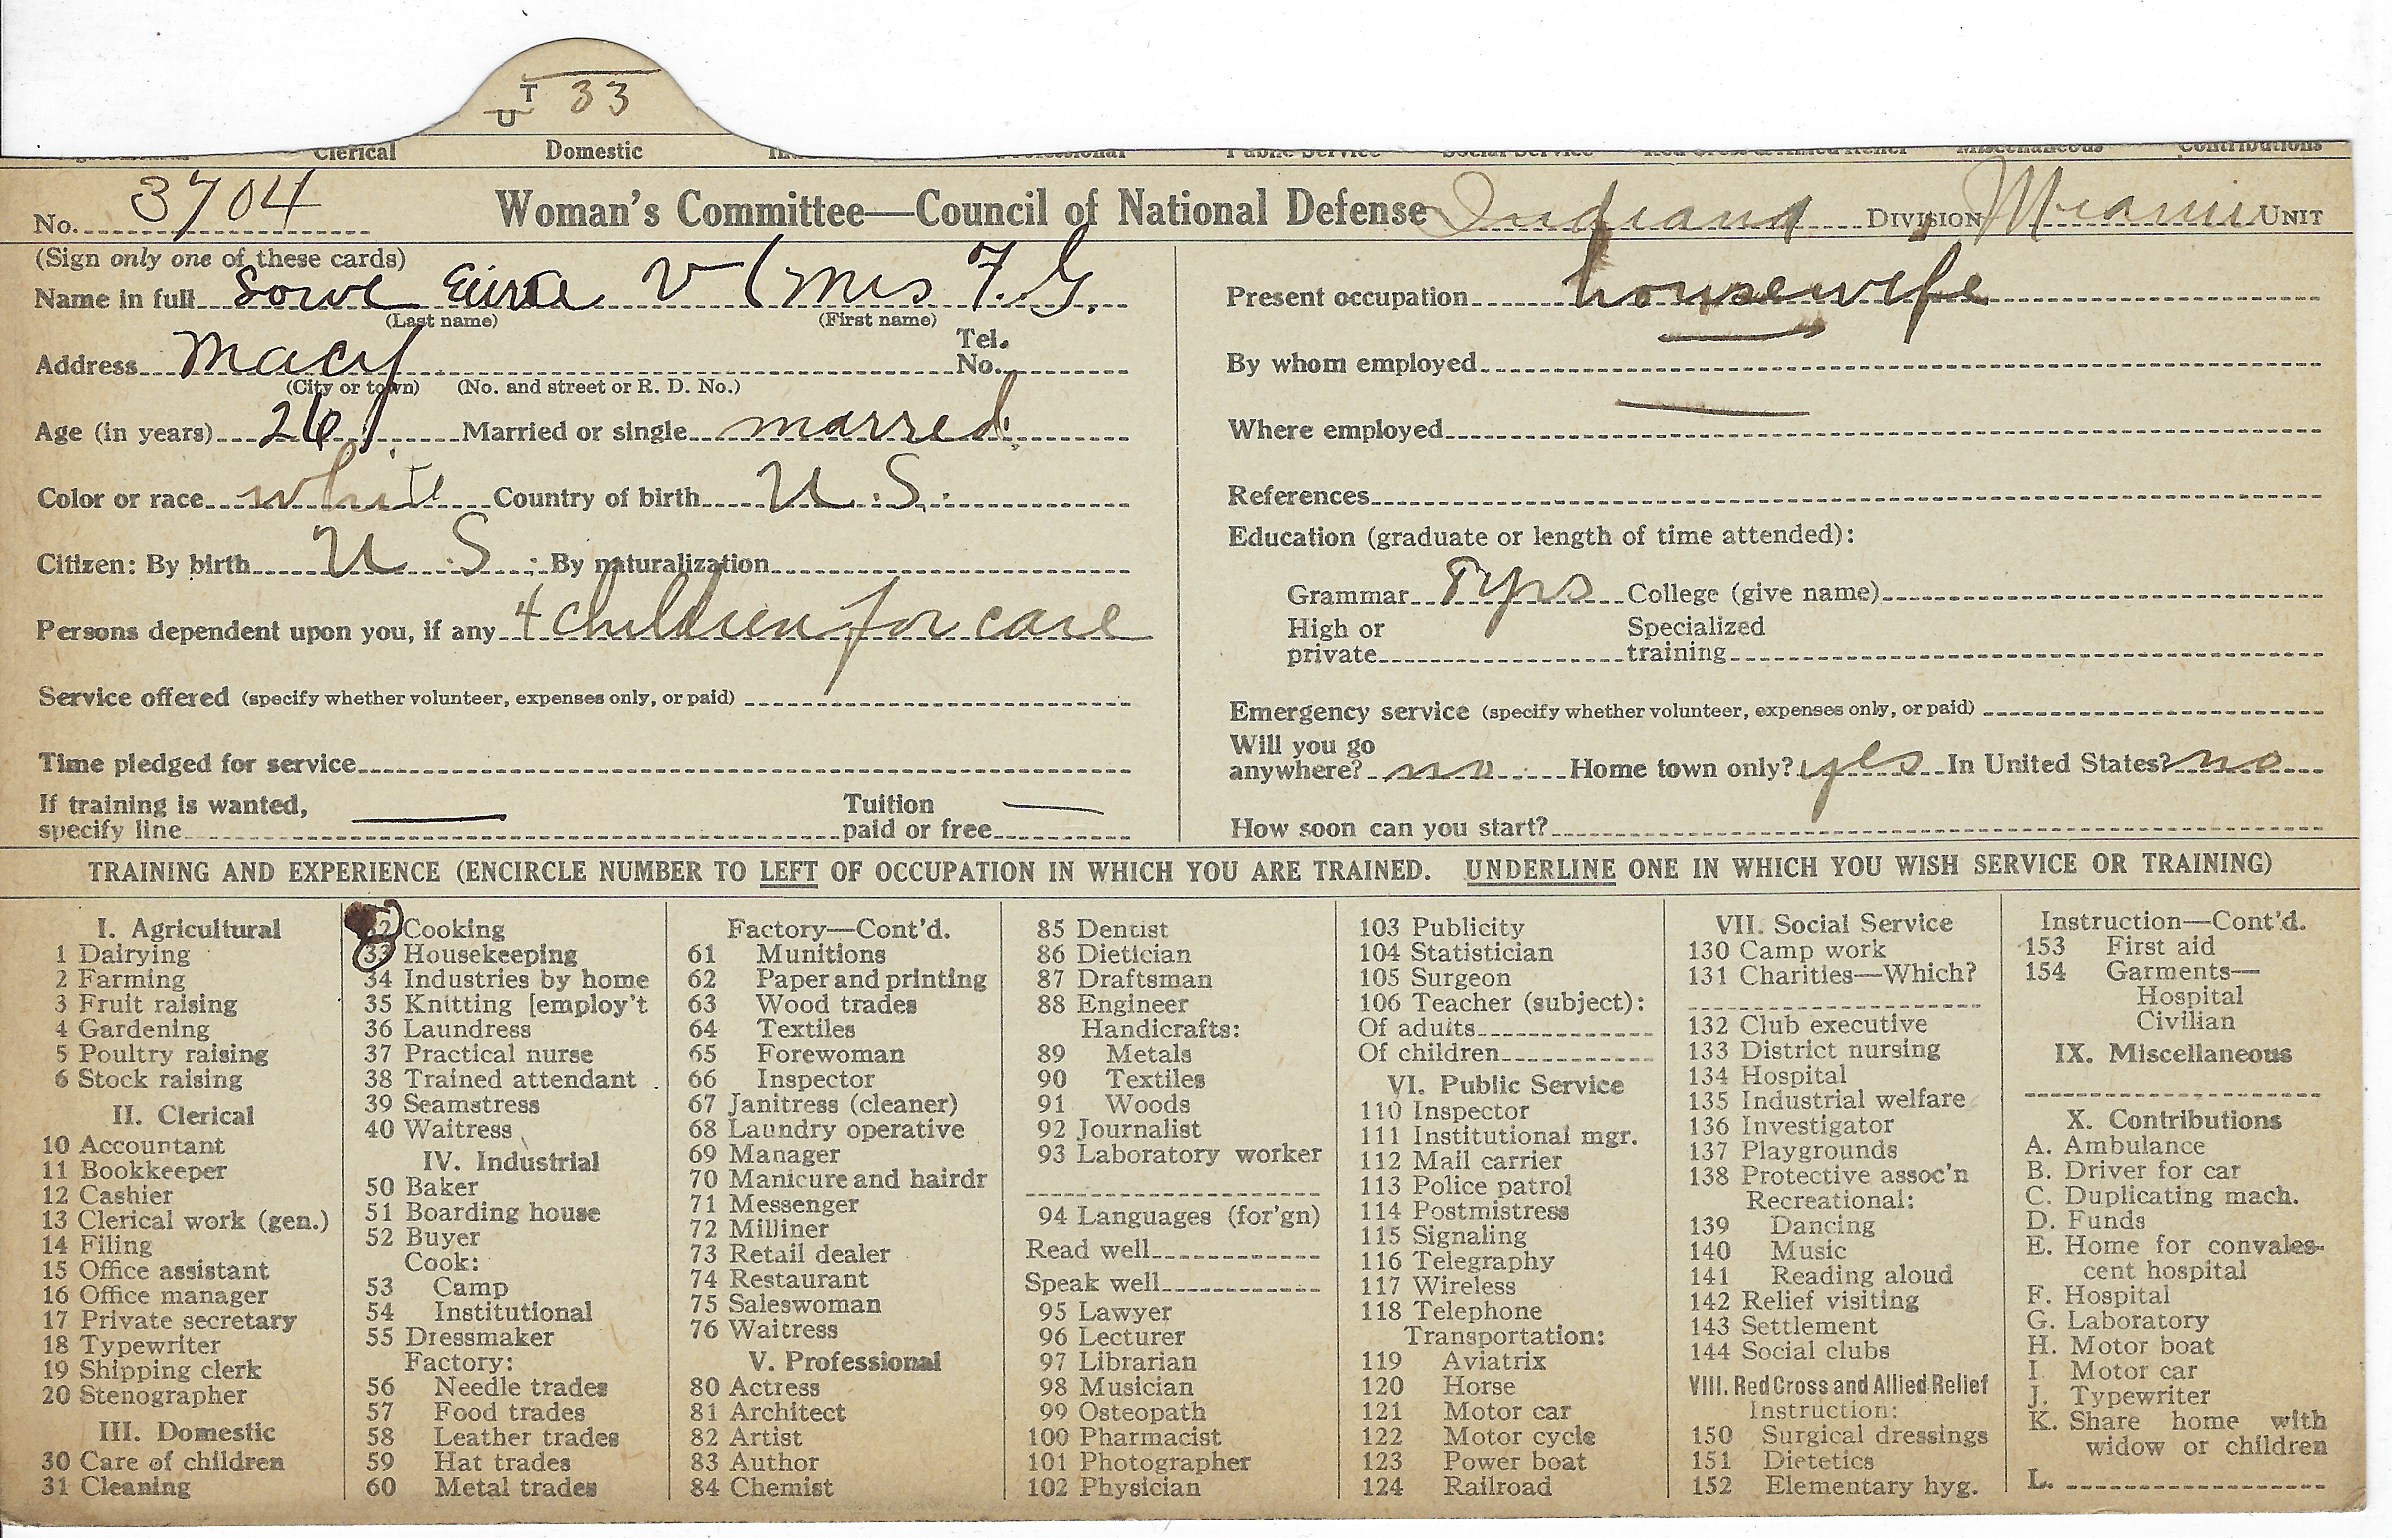 T 33
U
Clerical Domestic
No. 3704 Woman's Committee—Council of National Defense Indiana Division Miami Unit
(Sign only one of these cards)
Name in full V (Mrs F. G.
(Last name) (First name)
Address Macy Tel. No.
(City or town) (No. and street or R. D. No.)
Age (in years) 26 Married or single married
Color or race white Country of birth U.S.
Citizen: By birth U S ; By naturalization
Persons dependent upon you, if any 4 children for care
Service offered (specify whether volunteer, expenses only, or paid)
Time pledged for service
If training is wanted, specify line — Tuition paid or free —
Present occupation housewife
By whom employed —
Where employed —
References
Education (graduate or length of time attended):
Grammar yrs College (give name)
High or private Specialized training
Emergency service (specify whether volunteer, expenses only, or paid)
Will you go anywhere? no Home town only? yes In United States? no
How soon can you start?
TRAINING AND EXPERIENCE (ENCIRCLE NUMBER TO LEFT OF OCCUPATION IN WHICH YOU ARE TRAINED. UNDERLINE ONE IN WHICH YOU WISH SERVICE OR TRAINING)
I. Agricultural
1 Dairying
2 Farming
3 Fruit raising
4 Gardening
5 Poultry raising
6 Stock raising
II. Clerical
10 Accountant
11 Bookkeeper
12 Cashier
13 Clerical work (gen.)
14 Filing
15 Office assistant
16 Office manager
17 Private secretary
18 Typewriter
19 Shipping clerk
20 Stenographer
III. Domestic
30 Care of children
31 Cleaning
32 Cooking
33 Housekeeping
34 Industries by home
35 Knitting [employ't
36 Laundress
37 Practical nurse
38 Trained attendant
39 Seamstress
40 Waitress
IV. Industrial
50 Baker
51 Boarding house
52 Buyer
Cook:
53 Camp
54 Institutional
55 Dressmaker
Factory:
56 Needle trades
57 Food trades
58 Leather trades
59 Hat trades
60 Metal trades
Factory—Cont'd.
61 Munitions
62 Paper and printing
63 Wood trades
64 Textiles
65 Forewoman
66 Inspector
67 Janitress (cleaner)
68 Laundry operative
69 Manager
70 Manicure and hairdr
71 Messenger
72 Milliner
73 Retail dealer
74 Restaurant
75 Saleswoman
76 Waitress
V. Professional
80 Actress
81 Architect
82 Artist
83 Author
84 Chemist
85 Dentist
86 Dietician
87 Draftsman
88 Engineer
Handicrafts:
89 Metals
90 Textiles
91 Woods
92 Journalist
93 Laboratory worker
94 Languages (for'gn)
Read well
Speak well
95 Lawyer
96 Lecturer
97 Librarian
98 Musician
99 Osteopath
100 Pharmacist
101 Photographer
102 Physician
103 Publicity
104 Statistician
105 Surgeon
106 Teacher (subject):
Of adults
Of children
VI. Public Service
110 Inspector
111 Institutional mgr.
112 Mail carrier
113 Police patrol
114 Postmistress
115 Signaling
116 Telegraphy
117 Wireless
118 Telephone
Transportation:
119 Aviatrix
120 Horse
121 Motor car
122 Motor cycle
123 Power boat
124 Railroad
VII. Social Service
130 Camp work
131 Charities—Which?
132 Club executive
133 District nursing
134 Hospital
135 Industrial welfare
136 Investigator
137 Playgrounds
138 Protective assoc'n
Recreational:
139 Dancing
140 Music
141 Reading aloud
142 Relief visiting
143 Settlement
144 Social clubs
VIII. Red Cross and Allied Relief
Instruction:
150 Surgical dressings
151 Dietetics
152 Elementary hyg.
Instruction—Cont'd.
153 First aid
154 Garments—
Hospital
Civilian
IX. Miscellaneous
X. Contributions
A. Ambulance
B. Driver for car
C. Duplicating mach.
D. Funds
E. Home for convales-
cent hospital
F. Hospital
G. Laboratory
H. Motor boat
I. Motor car
J. Typewriter
K. Share home with
widow or children
L.